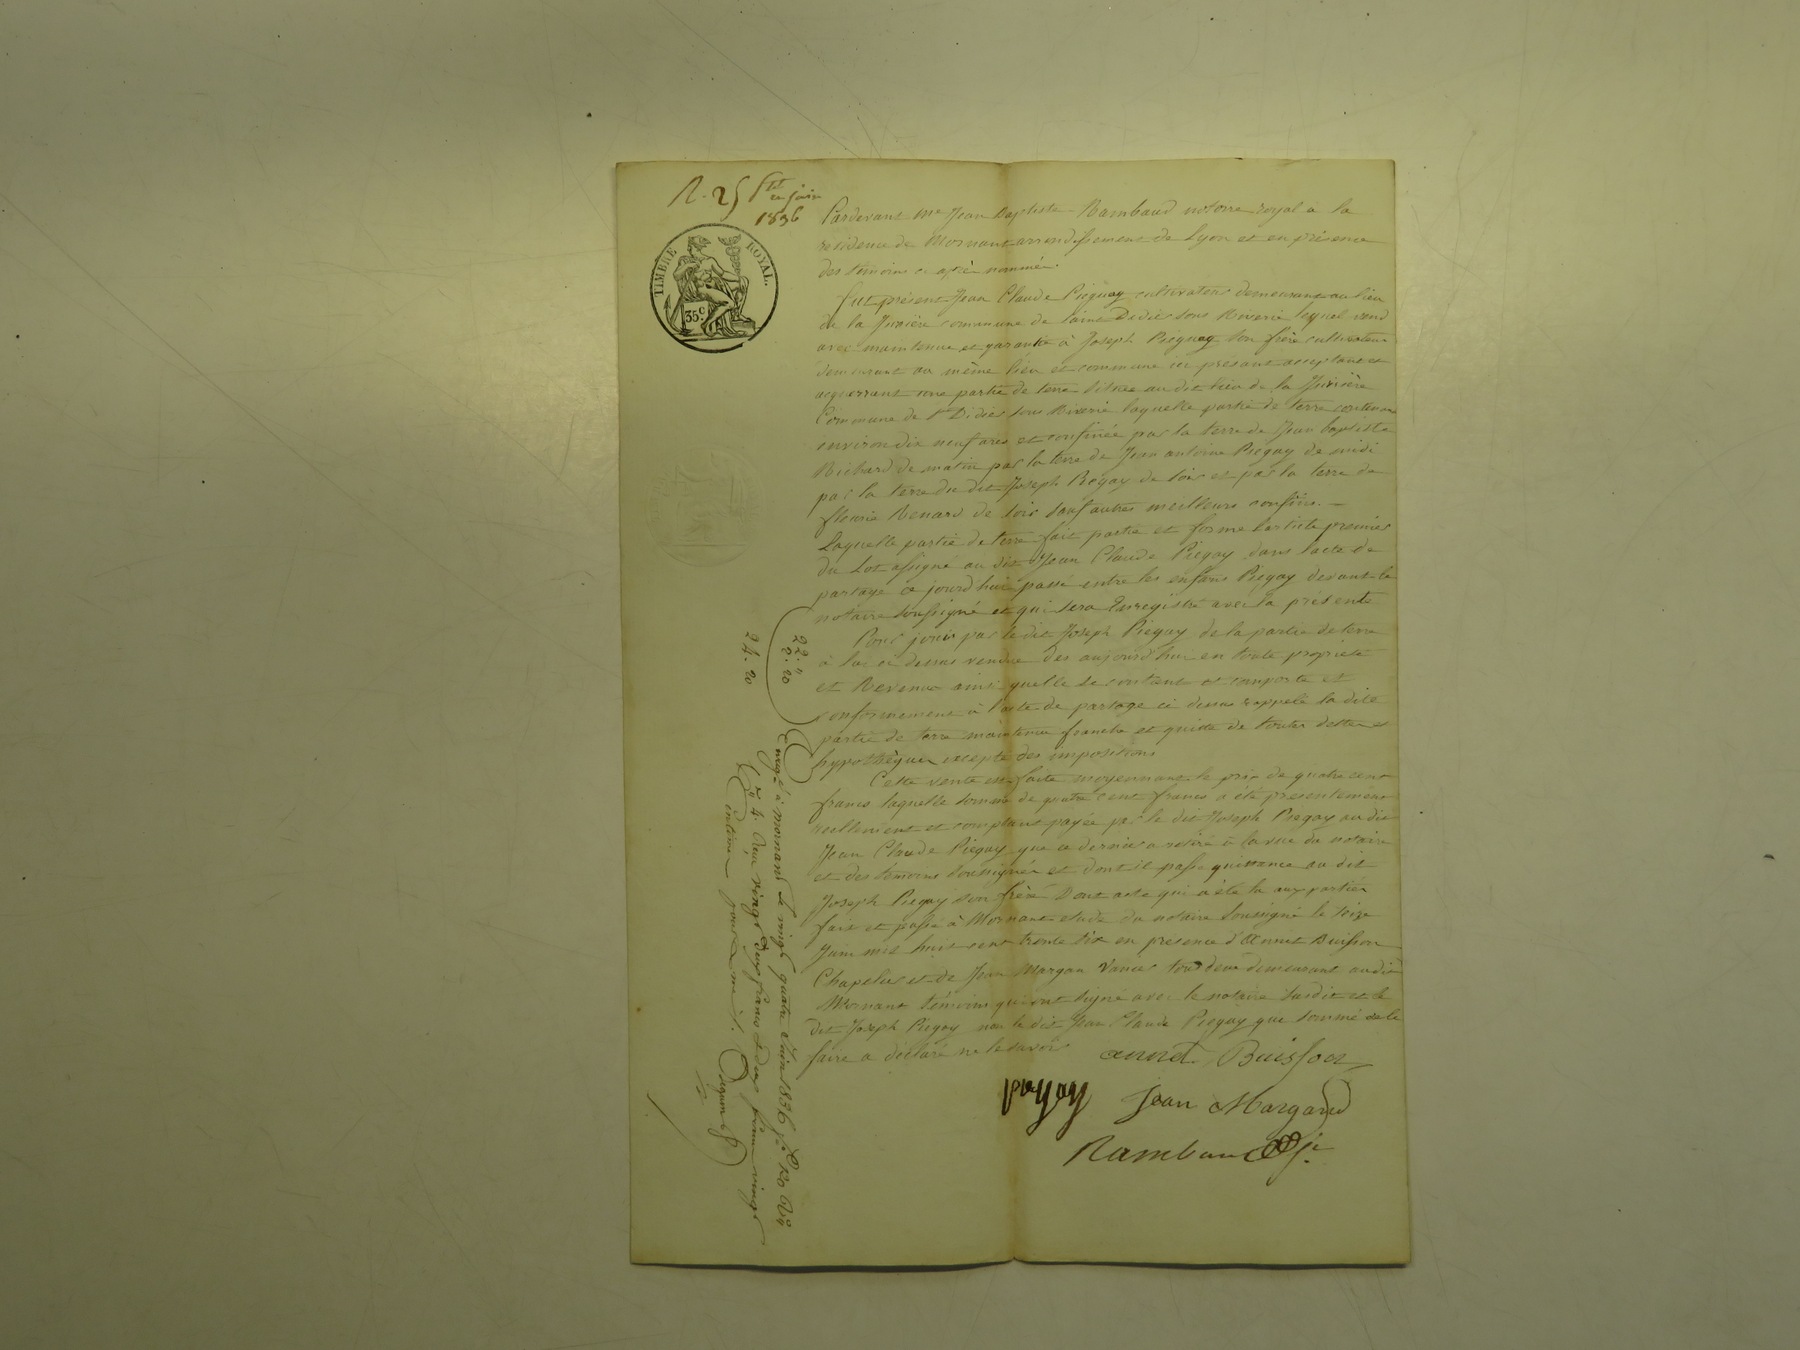 N. 25
juin
1836
TIMBRE ROYAL.
35 c.
Pardevant Me Jean Baptiste Rambaud notaire royal à la
résidence de Mornant arrondissement de Lyon et en présence
des témoins ci après nommés.
fut présent Jean Claude Piegay cultivateur demeurant au lieu
de la commune de saint Didier sous Riverie lequel vend
avec maintenue et garantie à Joseph Piegay son frère cultivateur
demeurant au même lieu et commune ici présent acceptant et
acquerrant une partie de terre située au dit lieu de la
Commune de St Didier sous Riverie laquelle partie de terre contenant
environ dix neuf ares et confinée par la terre de Jean baptiste
Richard de matin par la terre de Jean antoine Piegay de midi
par la terre du dit Joseph Piegay de soir et par la terre de
fleurie Renard de soir sauf autres meilleurs confins. —
Laquelle partie de terre fait partie et forme l'article premier
du Lot assigné au dit Jean Claude Piegay dans l'acte de
partage ce jourd'hui passé entre les enfans Piegay devant le
notaire soussigné et qui sera Enregistré avec la présente
Pour jouir par le dit Joseph Piegay de la partie de terre
à lui ci dessus vendue des aujourd'hui en toute propriété
et Revenus ainsi quelle se contient et comporte et
conformement à l'acte de partage ci dessus rappelé la dite
partie de terre maintenue franche et quitte de toutes dettes et
hypothèques excepté des impositions
Cette vente est faite moyennant le prix de quatre cent
francs laquelle somme de quatre cent francs a été présentement
reellement et comptant payée par le dit Joseph Piegay au dit
Jean Claude Piegay que ce dernier a retiré à la vue du notaire
et des témoins soussignés et dont il passe quittance au dit
Joseph Piegay son frère Dont acte qui a été lu aux parties
fait et passé à Mornant etude du notaire soussigné le seize
Juin mil huit cent trente six en presence d'Annet Buisson
Chapelier et de Jean Margan tous deux demeurant au dit
Mornant témoins qui ont signé avec le notaire susdit et le
dit Joseph Piegay non le dit Jean Claude Piegay que sommé de le
faire a déclaré ne le savoir
annet Buisson
piegay
Jean Margand
Rambaud
22. "
2. 20
24. 20
Enregé à mornant le vingt quatre Juin 1836 fo 120 Ro
Co 4. Reçu vingt deux francs deux francs vingt
centimes pour